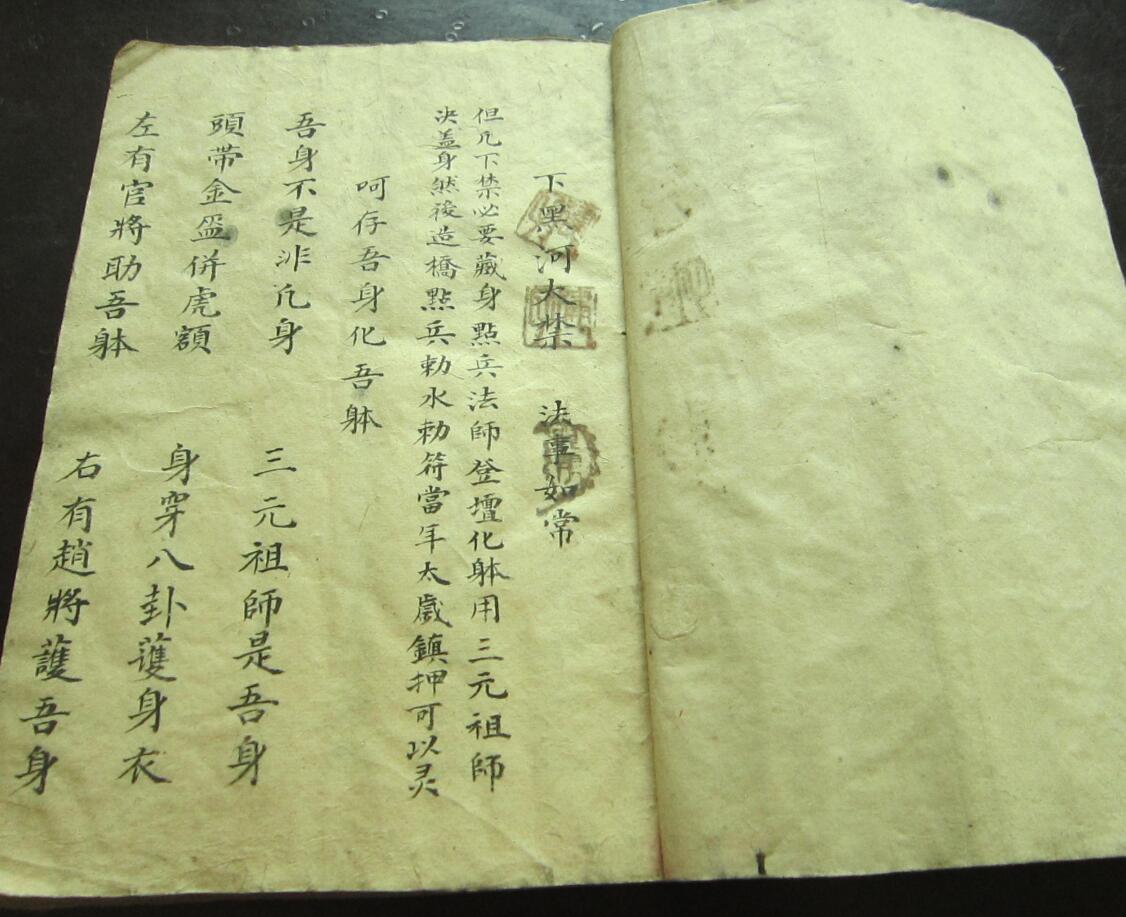 下黑河大禁 法事如常
但凢下禁必要藏身點兵法師登壇化躰用三元祖師
决蓋身然後造橋點兵勅水勅符當年太歲鎮押可以灵
呵存吾身化吾躰
吾身不是非凢身 三元祖師是吾身
頭帶金盔併虎額 身穿八卦護身衣
左有官將助吾躰 右有趙將護吾身